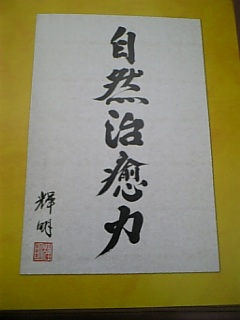 自然治癒力
輝明